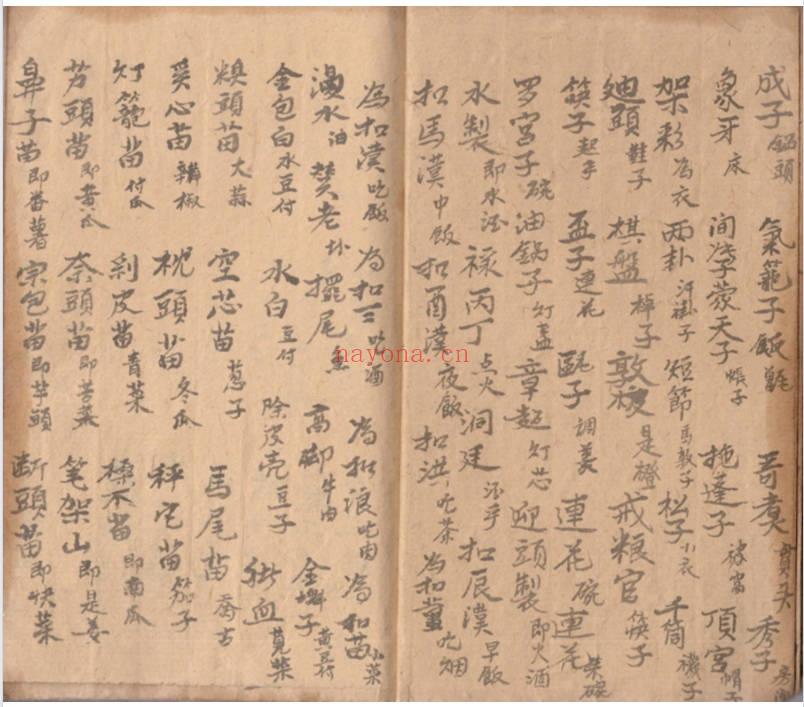 成子 鍋頭 氣蓖子 飯甑 哥煑 賣头 秀子
象牙 床 蒙天子 帳子 拖蓬子 頂宮 帽子
架彩 为衣 两卦 汗褂子 短節 馬敦子 松子 小衣 千筒 襪子
廸頭 鞋子 棋盤 棹子 敦梭 是櫈 戒粮官 筷子
筷子 起手 盃子 連花 甌子 調羹 連花 碗 連花 柴碗
罗宮子 碗 油鍋子 灯盏 章超 灯芯 迎頭製 即火酒
水製 即水酒 祿丙丁 点火 洞廷 酒乎 扣辰漢 早飯
扣馬漢 中飯 扣酉漢 夜飯 扣洪 吃茶 為扣薫 吃烟
為扣漢 吃飯 為扣三 吃酒 為扣浪 吃肉 為扣苗 小菜
漫水 油 老 卦 擺尾 魚 高脚 牛肉 金 子 黄豆付
金包白 水豆付 水白 豆付 除皮壳 豆子 血 莧菜
糗頭苗 大蒜 空芯苗 葱子 馬尾苗 喬古
奚心苗 辣椒 枕頭苗 冬瓜 秤它苗 茄子
灯籠苗 付瓜 剥皮苗 青菜 槁木苗 即南瓜
芳頭苗 即黄瓜 奈頭苗 即苦菜 笔架山 即是姜
鼻子苗 即番薯 宗包苗 即芋頭 断頭苗 即快菜
nayona.cn